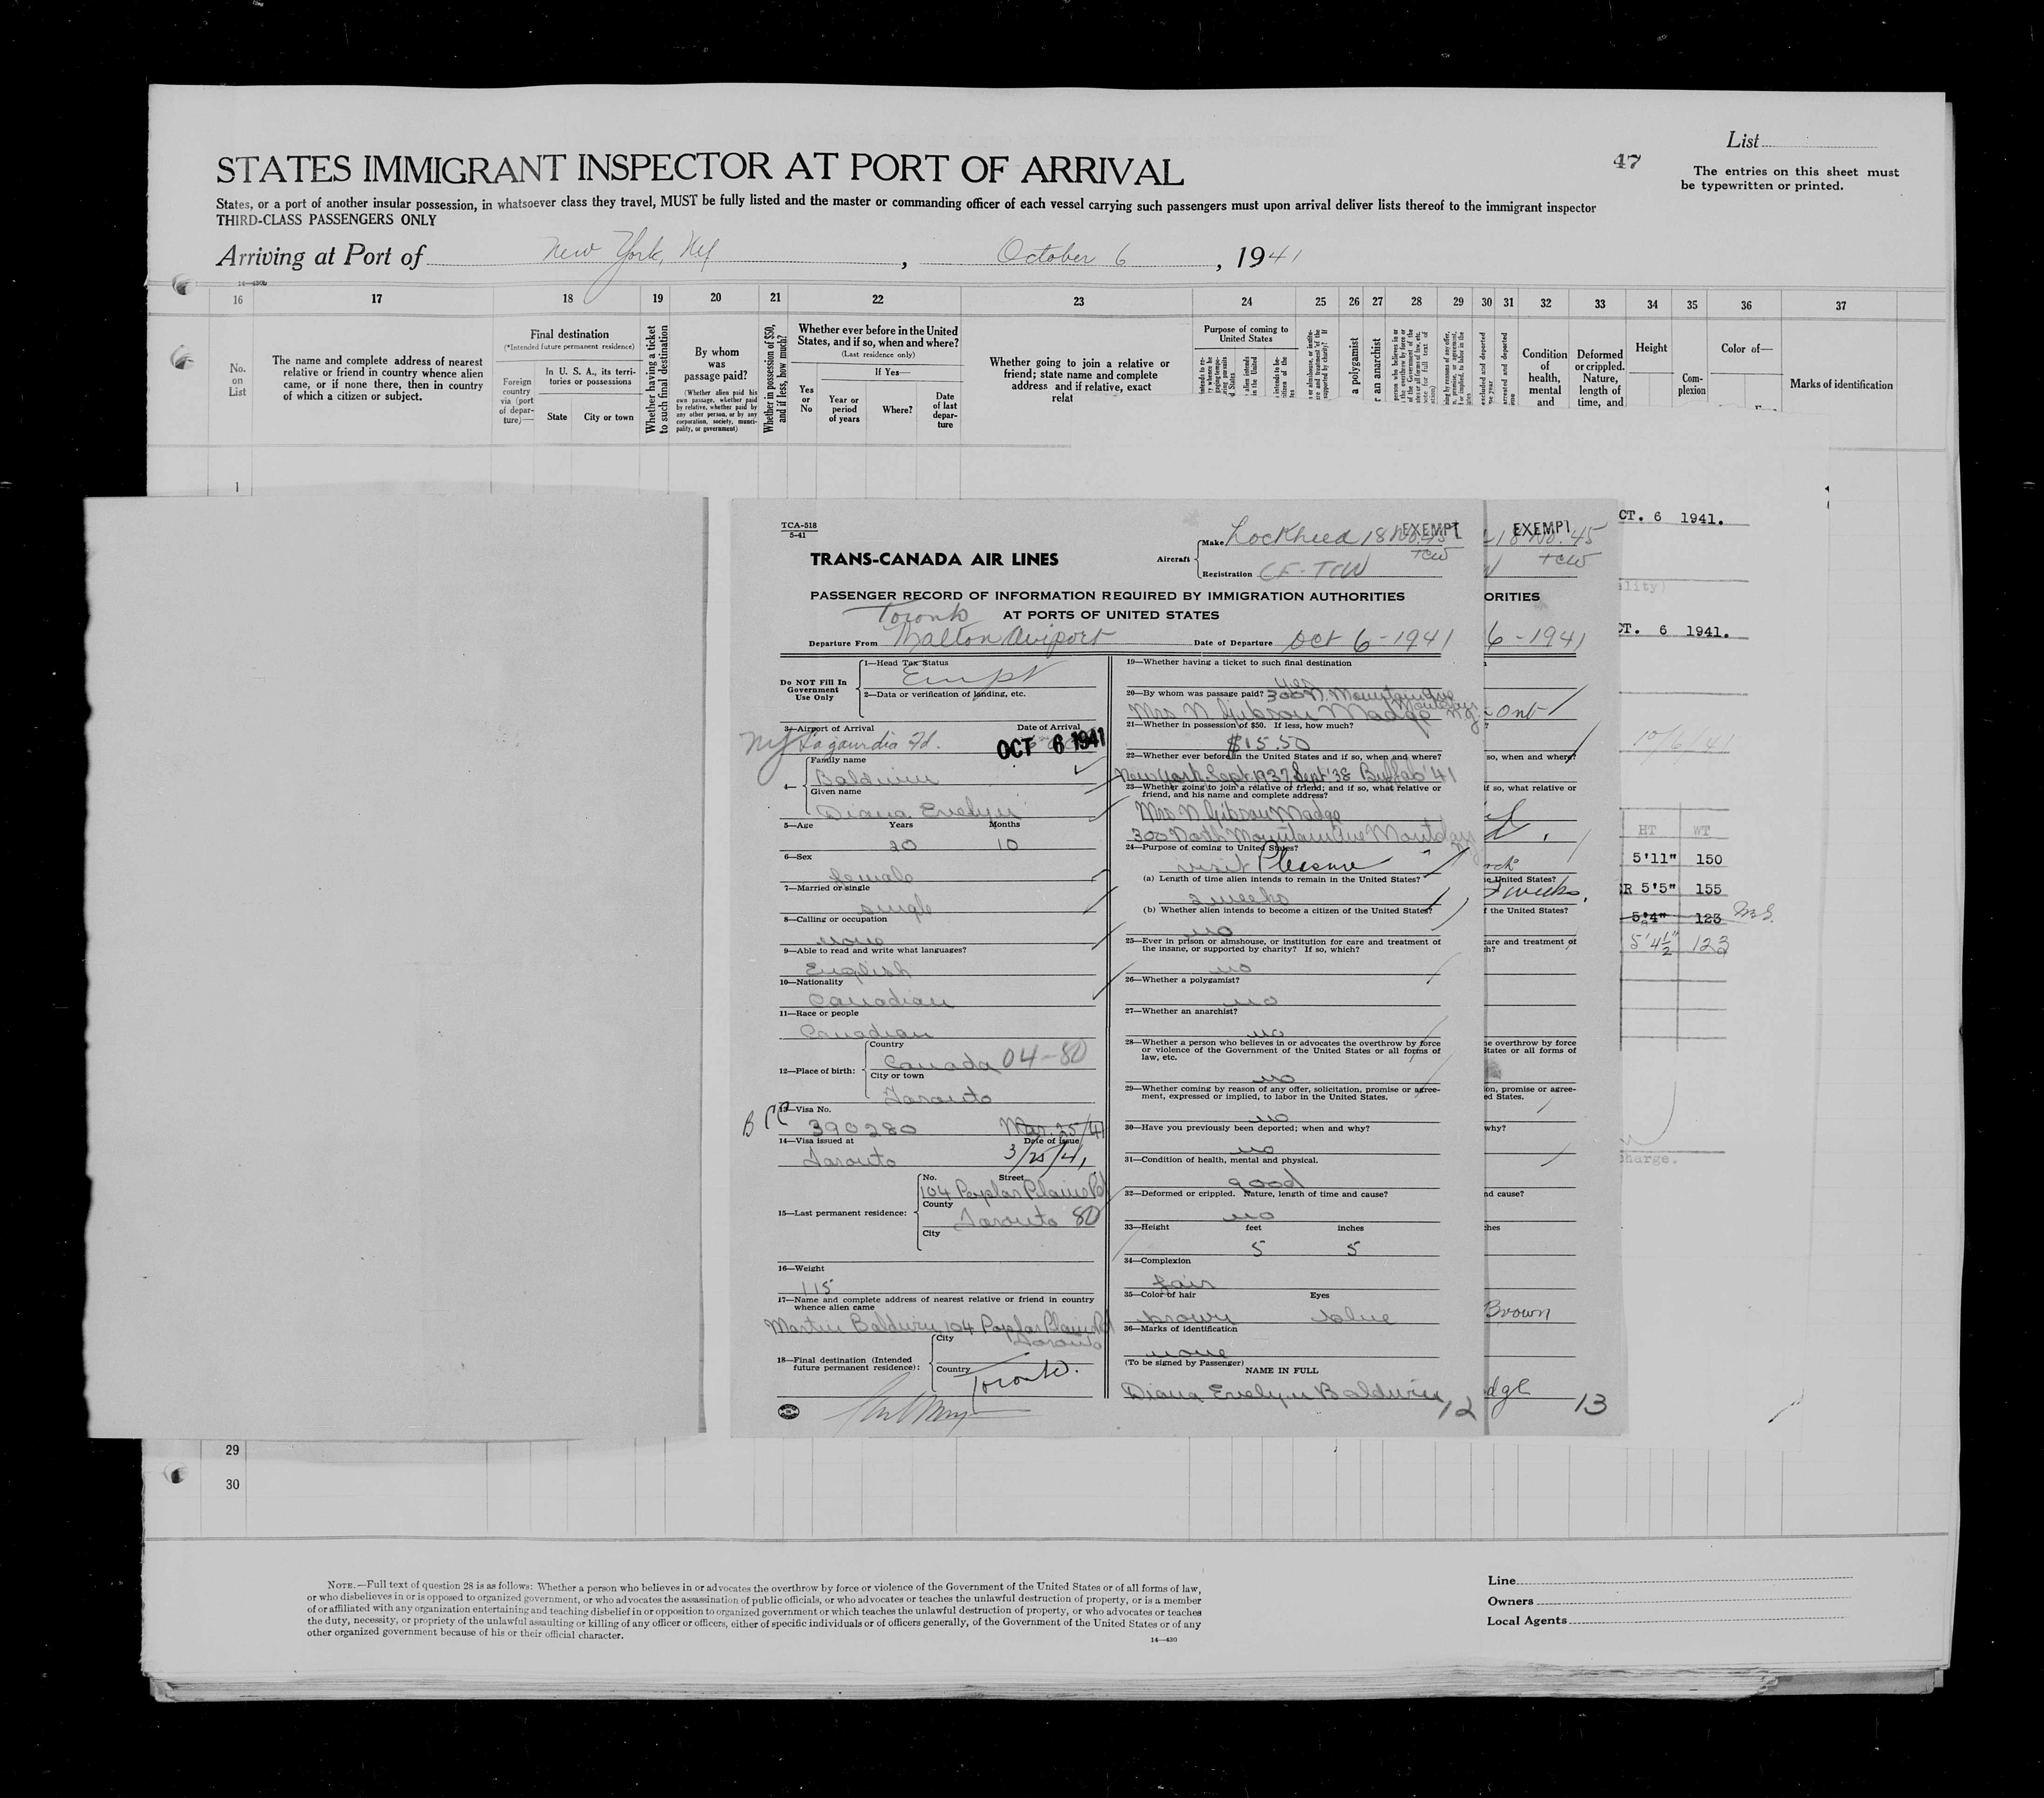 List
47
STATES IMMIGRANT INSPECTOR AT PORT OF ARRIVAL
The entries on this sheet must
be typewritten or printed.
States, or a port of another insular possession, in whatsoever class they travel, MUST be fully listed and the master or commanding officer of each vessel carrying such passengers must upon arrival deliver lists thereof to the immigrant inspector
THIRD-CLASS PASSENGERS ONLY
Arriving at Port of New York, NY, October 6, 1941
16 17 18 19 20 21 22 23 24 25 26 27 28 29 30 31 32 33 34 35 36 37
No.
on
List
The name and complete address of nearest
relative or friend in country whence alien
came, or if none there, then in country
of which a citizen or subject.
Final destination
(*Intended future permanent residence)
Foreign
country
via (port
of depar-
ture)—
In U. S. A., its terri-
tories or possessions
State City or town
Whether having a ticket
to such final destination
By whom
was
passage paid?
(Whether alien paid his
own passage, whether paid
by relative, whether paid by
any other person, or by any
corporation, society, munici-
pality, or government)
Whether in possession of $50,
and if less, how much?
Whether ever before in the United
States, and if so, when and where?
(Last residence only)
Yes
or
No
If Yes—
Year or
period
of years
Where?
Date
of last
depar-
ture
Whether going to join a relative or
friend; state name and complete
address and if relative, exact
relat
Purpose of coming to
United States
a polygamist
r an anarchist
Condition
of
health,
mental
and
Deformed
or crippled.
Nature,
length of
time, and
Height
Com-
plexion
Color of—
Marks of identification
1
TCA-518
5-41
TRANS-CANADA AIR LINES
Aircraft
Make Lockheed 18 No. 45
EXEMPT
TCW
Registration CF-TCW
PASSENGER RECORD OF INFORMATION REQUIRED BY IMMIGRATION AUTHORITIES
AT PORTS OF UNITED STATES
Toronto
Departure From Malton Airport Date of Departure Oct 6-1941
Do NOT Fill In
Government
Use Only
1—Head Tax Status
Empt
2—Data or verification of landing, etc.
3—Airport of Arrival Date of Arrival
NY Lagaurdia Fd. OCT 6 1941
4—
Family name
Baldwin
Given name
Diana Evelyn
5—Age Years Months
20 10
6—Sex
female
7—Married or single
single
8—Calling or occupation
none
9—Able to read and write what languages?
English
10—Nationality
Canadian
11—Race or people
Canadian
12—Place of birth:
Country
Canada 04-80
City or town
Toronto
13—Visa No.
BCC 390280 Mar. 25/41
14—Visa issued at Date of Issue
Toronto 3/25/41
15—Last permanent residence:
No. Street
104 Poplar Plains Rd
County
Toronto 80
City
16—Weight
115
17—Name and complete address of nearest relative or friend in country
whence alien came
Martin Baldwin 104 Poplar Plains Rd
Toronto
18—Final destination (Intended
future permanent residence):
City
Country
Toronto.
19—Whether having a ticket to such final destination
yes
20—By whom was passage paid? 300 N. Mountain Ave
Mrs N Gibson Madge
21—Whether in possession of $50. If less, how much?
$15.50
22—Whether ever before in the United States and if so, when and where?
New York Sept. 1937, Sept '38 Buffalo '41
23—Whether going to join a relative or friend; and if so, what relative or
friend, and his name and complete address?
Mrs N Gibson Madge
300 North Mountain Ave
24—Purpose of coming to United States?
visit Pleasure
(a) Length of time alien intends to remain in the United States?
2 weeks
(b) Whether alien intends to become a citizen of the United States?
no
25—Ever in prison or almshouse, or institution for care and treatment of
the insane, or supported by charity? If so, which?
no
26—Whether a polygamist?
no
27—Whether an anarchist?
no
28—Whether a person who believes in or advocates the overthrow by force
or violence of the Government of the United States or all forms of
law, etc.
no
29—Whether coming by reason of any offer, solicitation, promise or agree-
ment, expressed or implied, to labor in the United States.
no
30—Have you previously been deported; when and why?
no
31—Condition of health, mental and physical.
good
32—Deformed or crippled. Nature, length of time and cause?
no
33—Height feet inches
5 5
34—Complexion
fair
35—Color of hair Eyes
brown blue
36—Marks of identification
none
(To be signed by Passenger)
NAME IN FULL
Diana Evelyn Baldwin
12
EXEMPT
18 No. 45
TCW
ORITIES
6-1941
Ont
so, when and where?
if so, what relative or
e United States?
2 weeks.
f the United States?
care and treatment of
h?
he overthrow by force
States or all forms of
on, promise or agree-
ed States.
why?
nd cause?
ches
Brown
dge
13
CT. 6 1941.
ality)
CT. 6 1941.
10/6/41
HT WT
5'11" 150
R 5'5" 155
5'4" 123
5'4½" 123
harge.
29
30
NOTE.—Full text of question 28 is as follows: Whether a person who believes in or advocates the overthrow by force or violence of the Government of the United States or of all forms of law,
or who disbelieves in or is opposed to organized government, or who advocates the assassination of public officials, or who advocates or teaches the unlawful destruction of property, or is a member
of or affiliated with any organization entertaining and teaching disbelief in or opposition to organized government or which teaches the unlawful destruction of property, or who advocates or teaches
the duty, necessity, or propriety of the unlawful assaulting or killing of any officer or officers, either of specific individuals or of officers generally, of the Government of the United States or of any
other organized government because of his or their official character.
14—430
Line
Owners
Local Agents